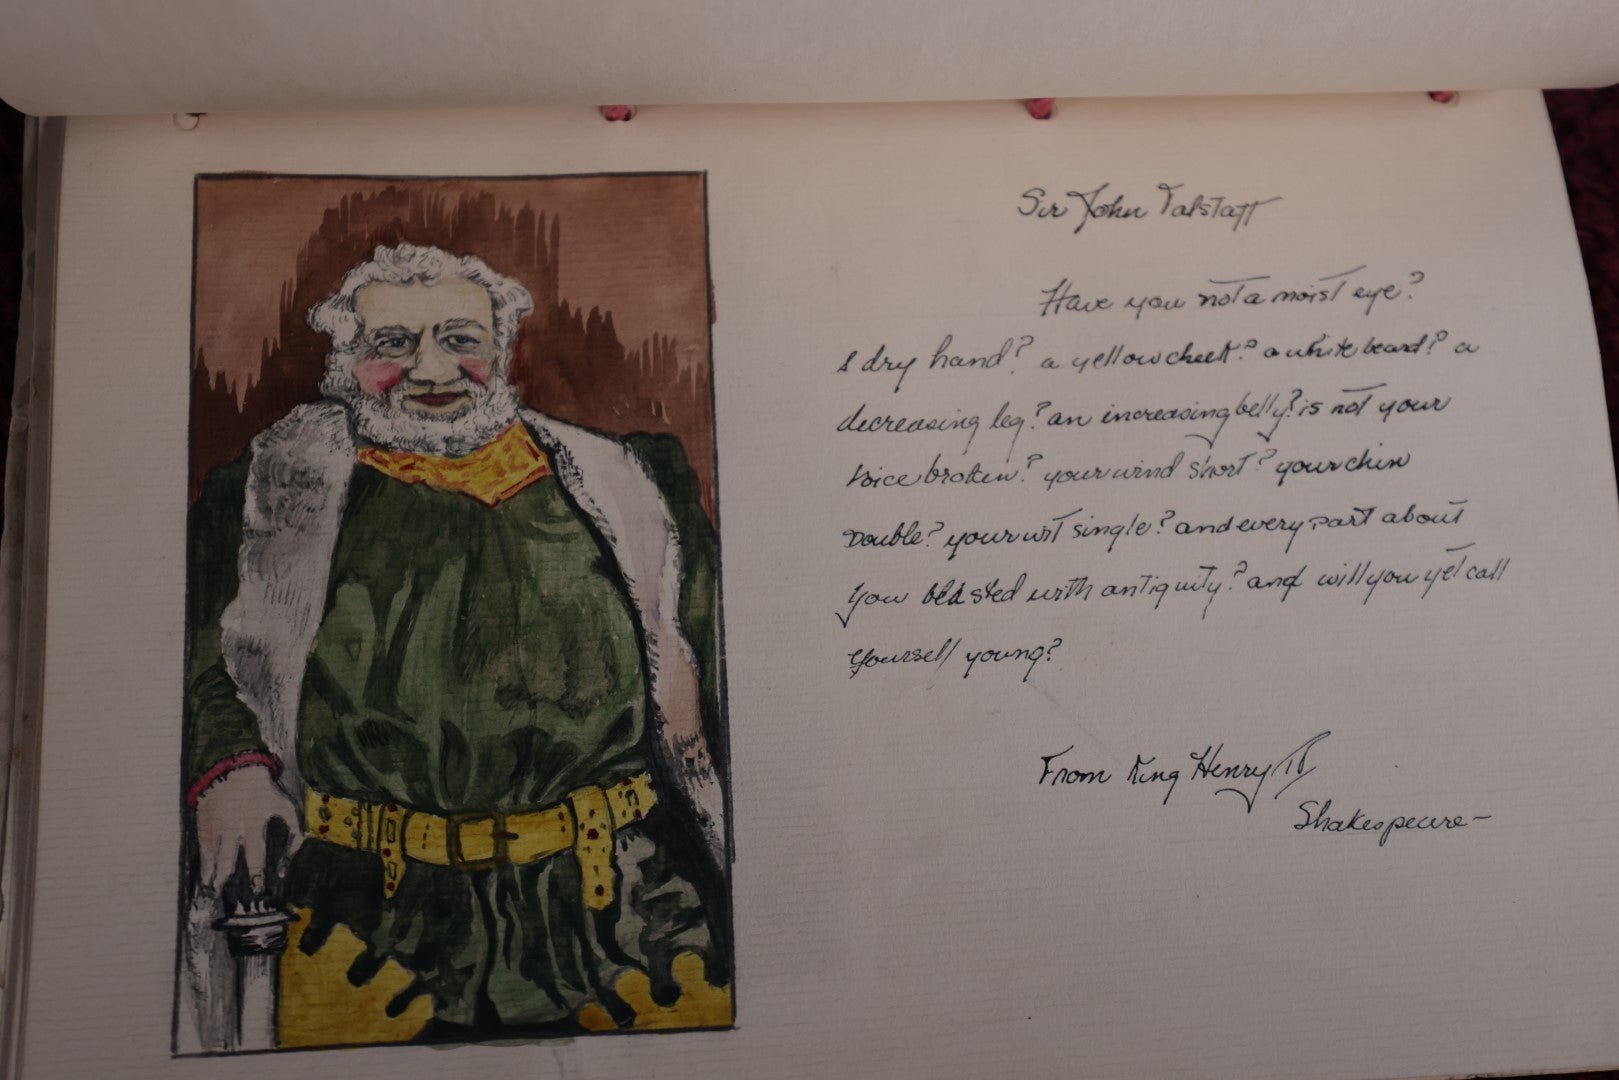 Sir John Falstaff
Have you not a moist eye?
a dry hand? a yellow cheek? a white beard? a
decreasing leg? an increasing belly? is not your
voice broken? your wind short? your chin
double? your wit single? and every part about
you blasted with antiquity? and will you yet call
yourself young?
From King Henry IV
Shakespeare-